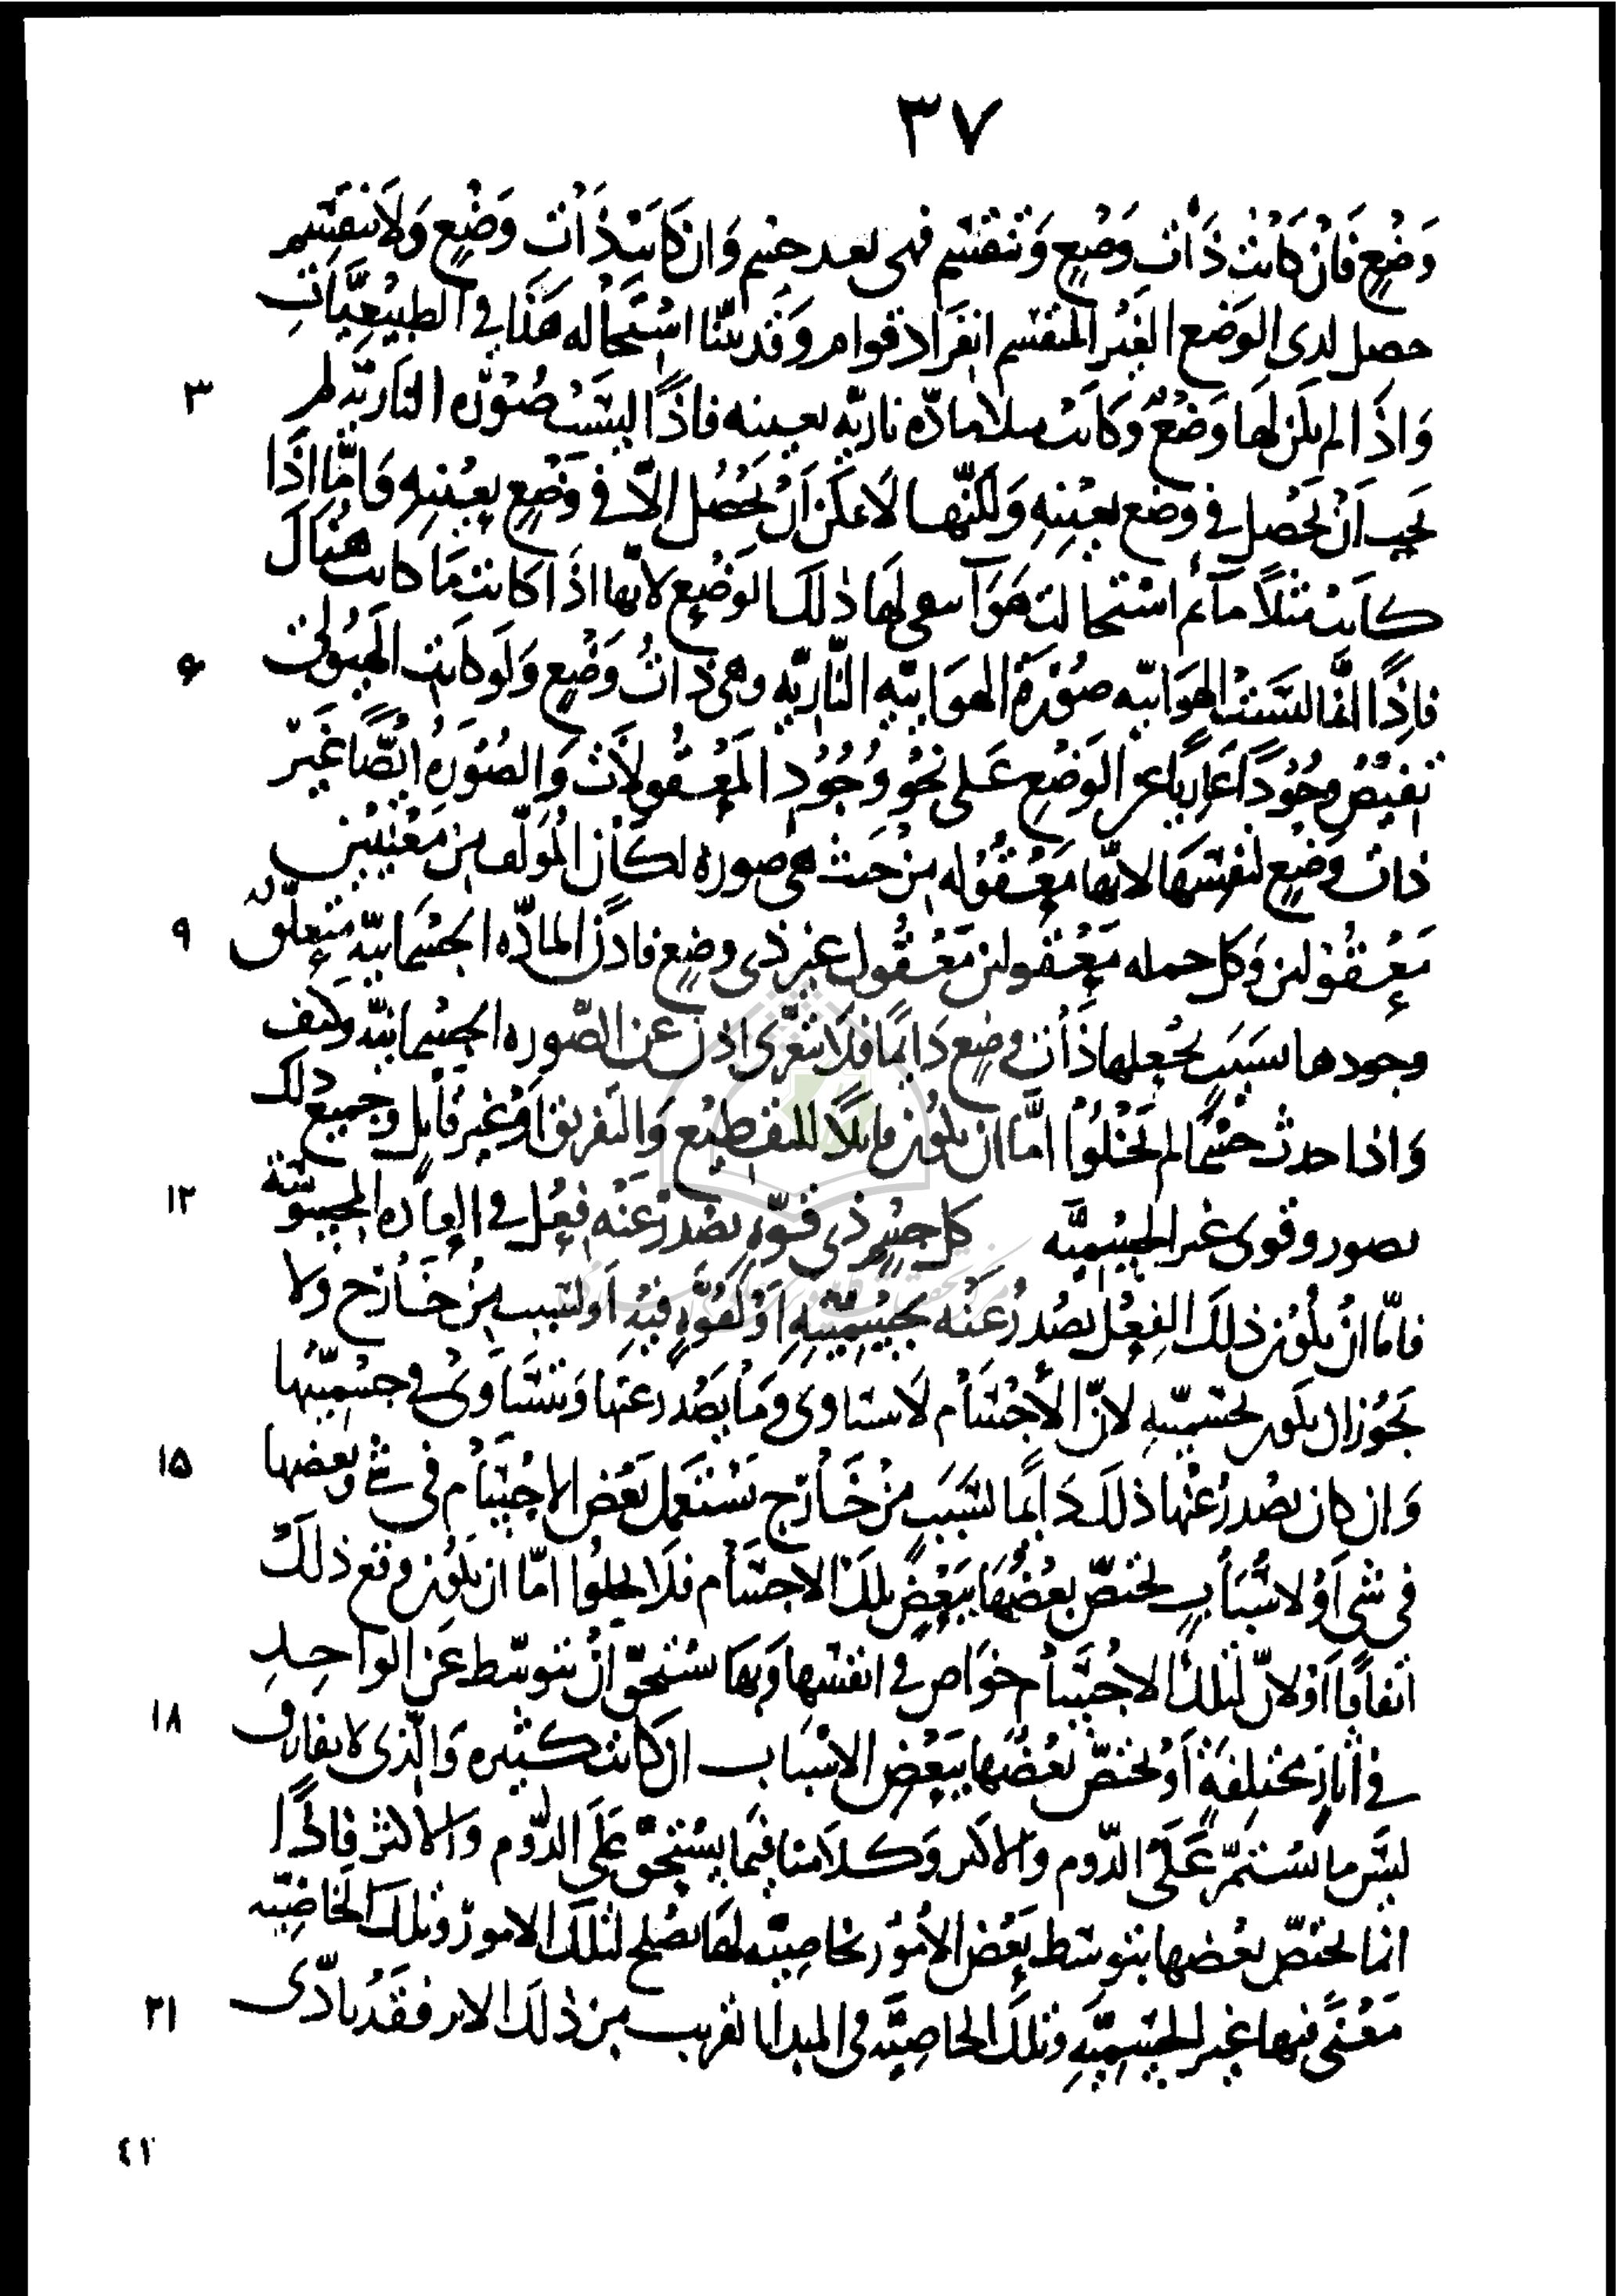 ٣٧
وَضْعٍ فَاِنْ كَانَتْ ذَاتَ وَضْعٍ وَتَنْقَسِم فهى بعد جسم وَان كَانَتْ ذَاتَ وَضْعٍ وَلَا تنقَسِم
حصل لذى الوَضع الغَيْر المنقسم انفرَاد قوام وَقَد بيّنّا اسْتحالة هَذَا فى الطبيْعِيَّاتِ
٣
وَاِذَا لم يكن لهَا وَضْعٌ وَكَانَتْ مثلا مادّه ناريّه بعينه فاذًا لبسَتْ صُوْرَه الناريّه لم
يَجب اَنْ يَحْصل فى وَضع بعيْنِهِ وَلكنّها لَا يمكن اَنْ يَحْصُل اِلّا فى وَضْعٍ بِعيْنِهِ وَامَّا اذَا
كَانَتْ مَثلاً مآءً ثم اسْتحالت هَوَآ لهَا ذلكَ الوَضْع لانّها اذَا كانت مَا كانت هُنَالَ
٦
فاِذًا انّما لبسَت الهَوَائيّه صُوْرَةَ الهوَائيّه النّاريّه وهى ذاتُ وَضْعٍ وَلَو كانت الهيُوْلى
تقتضى وجُوْدًا عَاريًا عن الوَضْعِ عَلى نحْو وُجُوْدِ المَعْقُولَات وَالصُوَرهُ ايضًا غَيْرَ
ذات وَضْعٍ لنفسهَا لانّها مَعْقُوْله مِنْ حَيث هى صوره لكَان المُوَلّف مِن مَعْنَيَيْن
٩
مَعْقُوْلين وَكل جمله مَعْقولين مَعْقُول غير ذى وضعٍ فاذن المادّه الجسْمَانيّه متعلّق
وجودها بسَبَبٍ يجْعلها ذَاتَ وضعٍ دَائمًا فلَا تتعَرَّى اذن عن الصّوره الجسْمانيّه وكيف
وَاذا حدث جسْمًا لم يَخْلُوا امّا ان يكون قابلاً للتقطيْع وَالتفريق اَوْ غير قابل وجميع ذلك
١٢
بصور وقوى غير الجسْميّه كلّ جسْمٍ ذى قوّه يَصْدر عَنْه فِعْل فى العاده المحسُوْسَة
فامّا انْ يكُون ذلكَ الفِعْل يَصْدُر عَنْه بجسْميّتِهِ اَوْ لقُوَّهٍ فيْهِ اَو لسَبب مِنْ خَارج ولا
يَجُوْز ان يكون بجسْميّتهِ لانّ الأجْسَام لَا تتساوى وَمَا يَصْدر عَنها وَتَتَسَاوى فى جسْميّتها
١٥
وَان كان يَصْدرُ عَنْها ذلكَ دَائمًا لسَبَبٍ مِنْ خَارج تستعمل بَعْض الاجْسَام فى شئ وبعضها
فى شئ اَوْ لاسْبَابٍ يختصّ بعْضُهَا ببعْضٍ تلك الاجسَام فلَا يخلُوا امّا ان يكُون وقع ذلكَ
اتفاقًا اَوْ لانّ لتلك الاجْسَام خوَاص فى انفسها وَبها تستحق اَنْ تتوسّط عَن الوَاحِد
١٨
فى اثارٍ مختلفةٍ اَوْ يختصّ بَعْضُها ببَعْض الاسْبَاب ان كانت كثيره وَالّذى لا تفاق
ليْسَ ما يَسْتمرّ عَلَى الدّوم وَالاكثر وَكلَامنا فيمَا يسْتحقّ عَلى الدّوم وَالاكثر فاذًا
انّما يختصّ بعْضها بتوسّط بَعْض الاُمُوْر لخاصِيّته لهَا تصْلح لتلكَ الامور وتلكَ الخاصِيّه
٢١
مَعْنًى فيها غير الجسْميّه وتلكَ الخاصِيّه فى المبدا القريب مِن ذلكَ الاثر فَقَدْ تادّى
٤٢